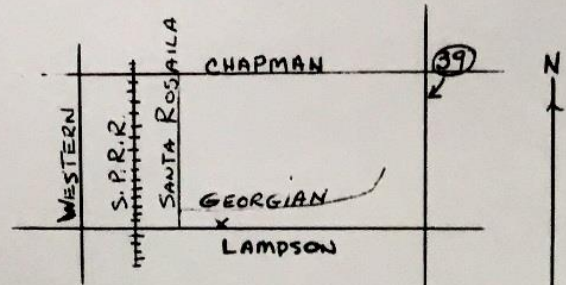 CHAPMAN
39
N
WESTERN
S.P.R.R.
SANTA ROSALIA
GEORGIAN
X
LAMPSON